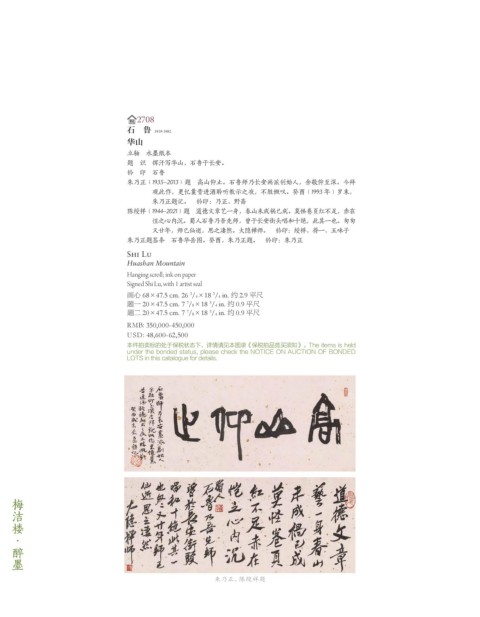 2708
石 鲁 1919-1982
华山
立轴 水墨纸本
题 识 挥汗写华山，石鲁于长安。
钤 印 石鲁
朱乃正（1935-2013）题 高山仰止。石鲁师乃长安画派创始人，余敬仰至深。今拜
观此作，更忆囊
朱乃正题记。 钤印：乃正、野斋
陈绶祥（1944-2021）题 道德文章艺一身，春山未成偶已成。莫怪卷页红不足，赤在
恺之心内沉。蜀人石鲁乃吾先师，曾于长安街头唱和十绝，此其一也。匆匆
又廿年，师已仙逝，思之凄然。大隐禅师。 钤印：绶祥、
朱乃正题签条 石鲁华岳图。癸酉，朱乃正题。 钤印：朱乃正
SHI LU
Huashan Mountain
Hanging scroll; ink on paper
Signed Shi Lu, with 1 artist seal
画心 68×47.5 cm. 26 3/4×18 3/4 in. 约 2.9 平尺
题一 20×47.5 cm. 7 7/8×18 3/4 in. 约 0.9 平尺
题二 20×47.5 cm. 7 7/8×18 3/4 in. 约 0.9 平尺
RMB: 350,000-450,000
USD: 48,600-62,500
本件拍卖标的处于保税状态下，详情请见本图录《保税拍品竞买须知》。The items is held
under the bonded status, please check the NOTICE ON AUCTION OF BONDED
LOTS in this catalogue for details.
高山仰止
道德文章
艺一身春山
未成偶已成
莫怪卷页
红不足赤在
恺之心内沉
蜀人
石鲁乃吾先师
曾于长安街头
唱和十绝此其一
也匆匆又廿年师已
仙逝思之凄然
大隐禅师
朱乃正、陈绶祥题
梅洁楼·醉墨